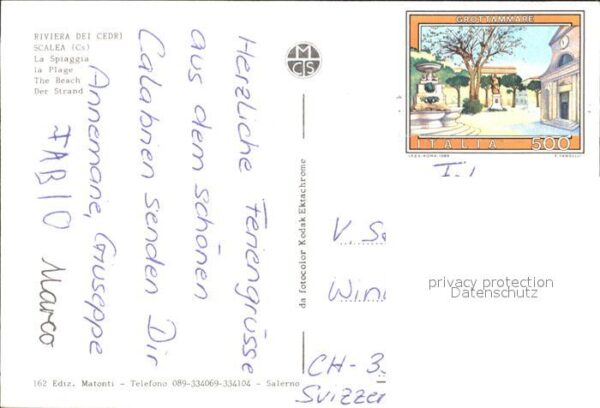 RIVIERA DEI CEDRI
SCALEA (Cs)
La Spiaggia
la Plage
The Beach
Der Strand
Herzliche Feriengrüsse
aus dem schönen
Calabrien senden Dir
Annemarie, Giuseppe
FABIO Marco
162 Ediz. Matonti - Telefono 089-334069-334104 - Salerno
da fotocolor Kodak Ektachrome
M
C S
GROTTAMMARE
ITALIA 500
I.P.Z.S.-ROMA-1986
I.1
V
CH-3
privacy protection
Datenschutz